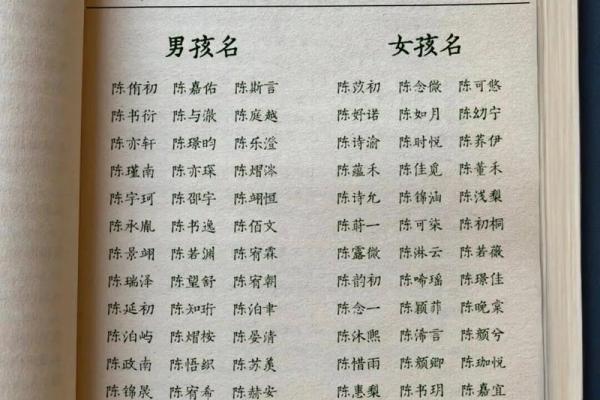 男孩名 女孩名
陈侑初 陈嘉佑 陈斯言 陈苡初 陈念微 陈可悠
陈书衍 陈与澈 陈庭越 陈好诺 陈如月 陈幼宁
陈亦轩 陈璟昀 陈乐滢 陈诗渝 陈时悦 陈荞伊
陈瑾南 陈亦琛 陈熠涔 陈蕴禾 陈佳觅 陈董禾
陈宇珂 陈邵宇 陈翊恒 陈诗允 陈锦涵 陈浅梨
陈永胤 陈书逸 陈佰文 陈蒔一 陈可柒 陈初桐
陈景翊 陈若渊 陈宥霖 陈露微 陈淋云 陈若薇
陈瑞泽 陈望舒 陈宥朝 陈韵初 陈唏瑶 陈璟佳
陈延初 陈知珩 陈泊聿 陈念一 陈颖菲 陈晚棠
陈泊屿 陈熠桉 陈晏清 陈沐熙 陈浠言 陈颜兮
陈政南 陈悟织 陈苏羡 陈惜雨 陈颜卿 陈珈悦
陈锦晟 陈宥希 陈赫安 陈惠梨 陈书玥 陈嘉宜